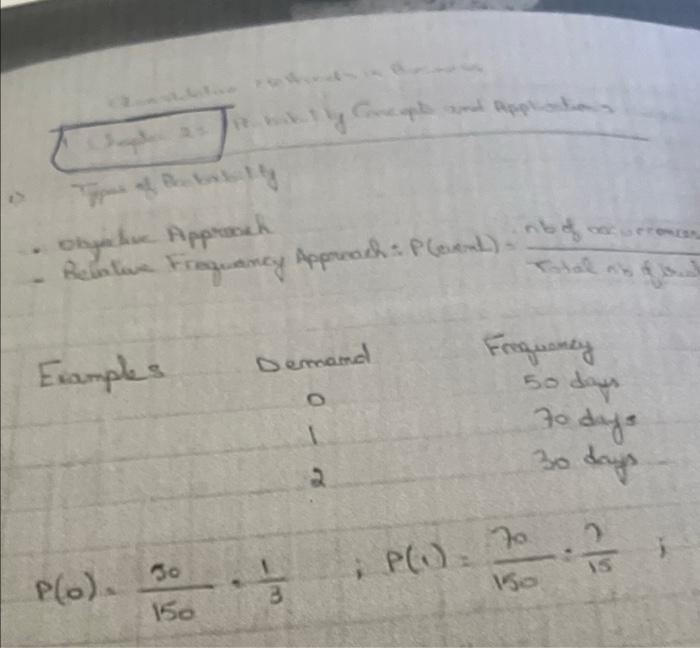 Quantitative Methods in Business
Chapter 2: Probability Concepts and Applications
1) Types of Probability
. Objective Approach
- Relative Frequency Approach: P(event) = nb of occurrences / Total nb of
Examples Demand Frequency
0 50 days
1 70 days
2 30 days
P(0) = 50/150 = 1/3 ; P(1) = 70/150 = 7/15 ;